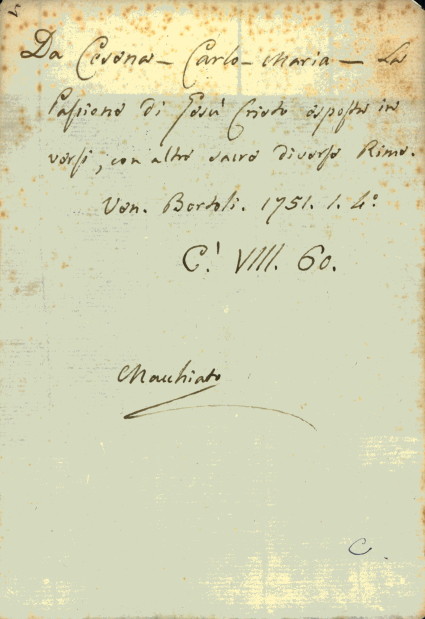 Da Cesena - Carlo - Maria - La
Passione di Gesù Cristo esposta in
versi, con altre sacre diverse Rime.
Ven. Bortoli. 1751. 1. 4º
C.! VIII. 60.
Macchiato
C.